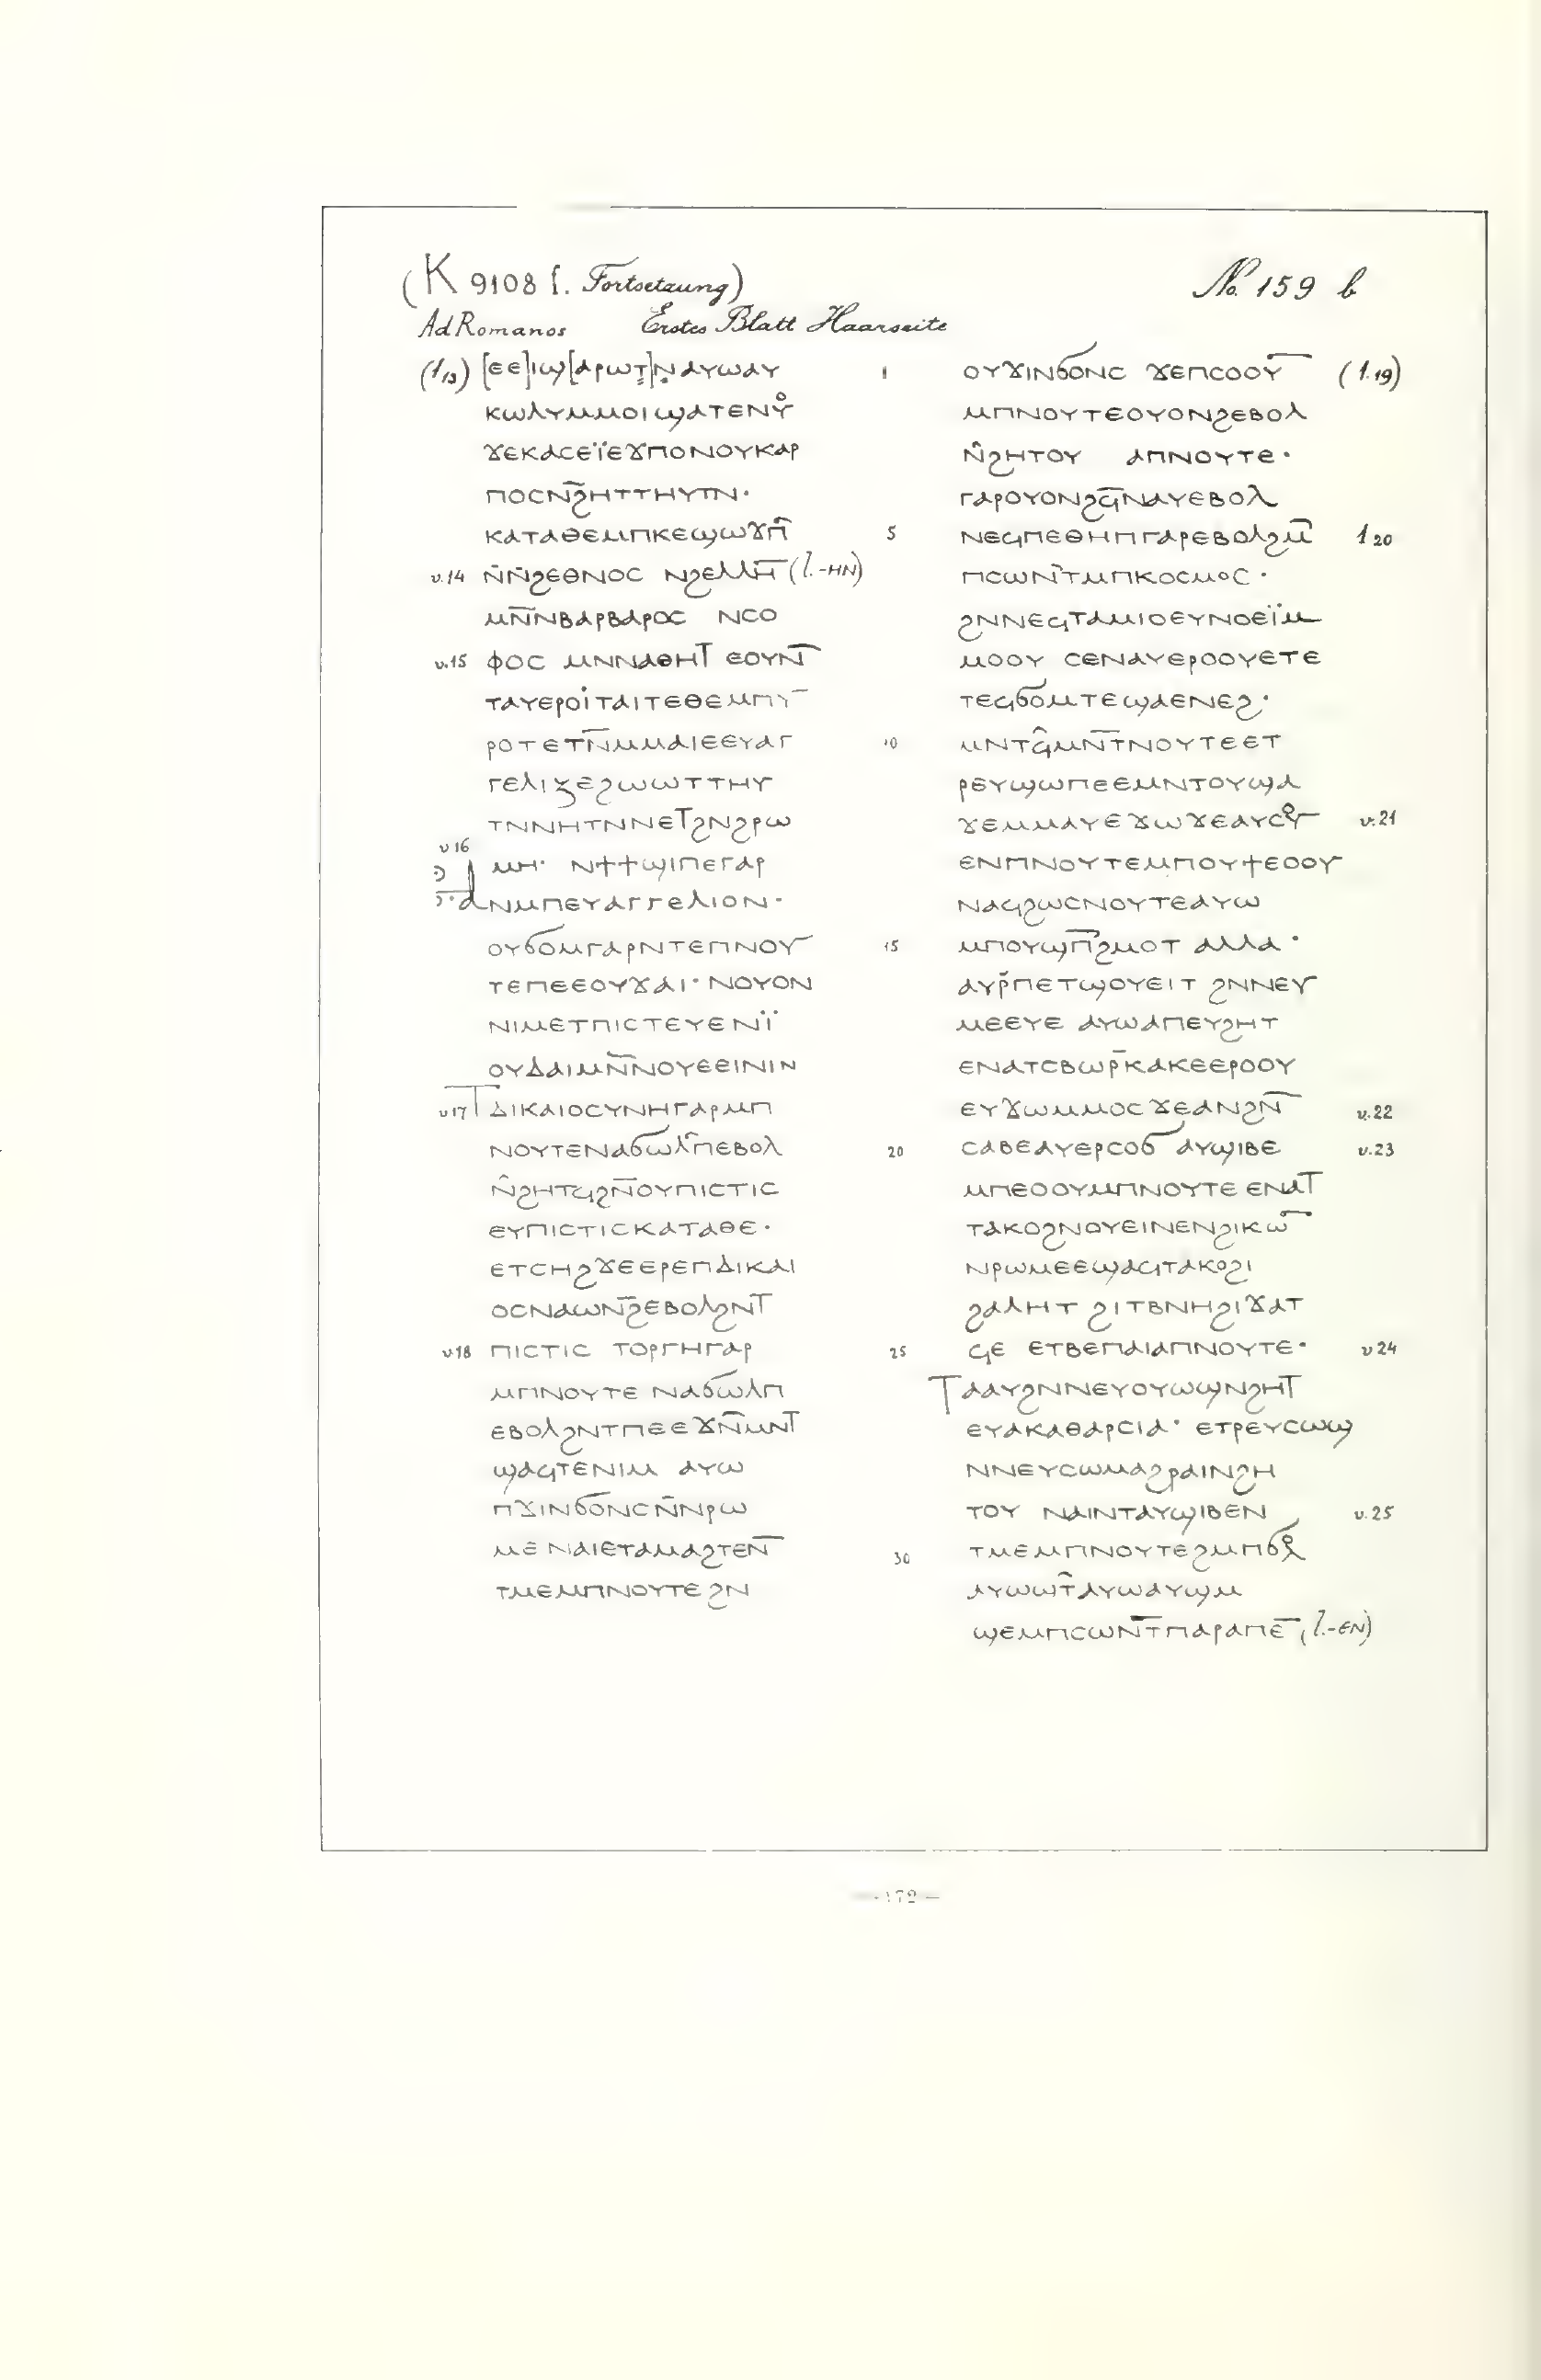 (K 9108 f. Fortsetzung)
No. 159 b
Ad Romanos Erstes Blatt Haarseite
(1,13) [ⲉⲉ]ⲓϣ[ⲁⲣⲱⲧ̣]ⲛ̣ⲁⲩⲱⲁⲩ
ⲕⲱⲗⲩⲙⲙⲟⲓϣⲁⲧⲉⲛⲟⲩ
ϫⲉⲕⲁⲥⲉⲓ̈ⲉϫⲡⲟⲛⲟⲩⲕⲁⲣ
ⲡⲟⲥⲛ̄ϩⲏⲧⲧⲏⲩⲧⲛ·
ⲕⲁⲧⲁⲑⲉⲙⲡⲕⲉϣⲱϫⲡ̄
v.14 ⲛ̄ⲛ̄ϩⲉⲑⲛⲟⲥ ⲛϩⲉⲗⲗⲏ̅ (l.-ⲏⲛ)
ⲙⲛ̄ⲛⲃⲁⲣⲃⲁⲣⲟⲥ ⲛⲥⲟ
v.15 ⲫⲟⲥ ⲙⲛⲛⲁⲑⲏⲧ ⲉⲟⲩⲛ̅ⲧ̅
ⲧⲁⲩⲉⲣⲟⲓ̇ⲧⲁⲓⲧⲉⲑⲉⲙⲡⲩ̅
ⲣⲟⲧⲉⲧⲛ̄ⲙⲙⲁⲓⲉⲉⲩⲁⲅ
ⲅⲉⲗⲓⲍⲉϩⲱⲱⲧⲧⲏⲩ
ⲧⲛⲛⲏⲧⲛⲛⲉⲧϩⲛϩⲣⲱ
v 16 ⲙⲏ· ⲛϯϯϣⲓⲡⲉⲅⲁⲣ
ⲁⲛⲙⲡⲉⲩⲁⲅⲅⲉⲗⲓⲟⲛ·
ⲟⲩϭⲟⲙⲅⲁⲣⲛⲧⲉⲡⲛⲟⲩ
ⲧⲉⲡⲉⲉⲟⲩϫⲁⲓ· ⲛⲟⲩⲟⲛ
ⲛⲓⲙⲉⲧⲡⲓⲥⲧⲉⲩⲉⲛⲓ̈
ⲟⲩⲇⲁⲓⲙⲛ̄ⲛⲟⲩⲉⲉⲓⲛⲓⲛ
v 17 ⲧⲇⲓⲕⲁⲓⲟⲥⲩⲛⲏⲅⲁⲣⲙⲡ
ⲛⲟⲩⲧⲉⲛⲁϭⲱⲗ̄ⲡⲉⲃⲟⲗ
ⲛ̂ϩⲏⲧϥϩⲛ̄ⲟⲩⲡⲓⲥⲧⲓⲥ
ⲉⲩⲡⲓⲥⲧⲓⲥⲕⲁⲧⲁⲑⲉ·
ⲉⲧⲥⲏϩϫⲉⲉⲣⲉⲡⲇⲓⲕⲁⲓ
ⲟⲥⲛⲁⲱⲛ̄ϩⲉⲃⲟⲗϩⲛⲧ
v 18 ⲡⲓⲥⲧⲓⲥ ⲧⲟⲣⲅⲏⲅⲁⲣ
ⲙⲡⲛⲟⲩⲧⲉ ⲛⲁϭⲱⲗⲡ
ⲉⲃⲟⲗϩⲛⲧⲡⲉⲉϫⲛ̄ⲙⲛⲧ
ϣⲁϥⲧⲉⲛⲓⲙ ⲁⲩⲱ
ⲡϫⲓⲛϭⲟⲛⲥⲛ̄ⲛⲣⲱ
ⲙⲉ ⲛⲁⲓⲉⲧⲁⲙⲁϩⲧⲉⲛ̅
ⲧⲙⲉⲙⲡⲛⲟⲩⲧⲉ ϩⲛ
1 ⲟⲩϫⲓⲛϭⲟⲛⲥ ϫⲉⲡⲥⲟⲟⲩ̅ (1.19)
ⲙⲡⲛⲟⲩⲧⲉⲟⲩⲟⲛϩⲉⲃⲟⲗ
ⲛ̂ϩⲏⲧⲟⲩ ⲁⲡⲛⲟⲩⲧⲉ·
ⲅⲁⲣⲟⲩⲟⲛϩϥ̄ⲛⲁⲩⲉⲃⲟⲗ
5 ⲛⲉϥⲡⲉⲑⲏⲡⲅⲁⲣⲉⲃⲟⲗϩⲙ̅ 1 20
ⲡⲥⲱⲛ̄ⲧⲙⲡⲕⲟⲥⲙⲟⲥ·
ϩⲛⲛⲉϥⲧⲁⲙⲓⲟⲉⲩⲛⲟⲉⲓ̈ⲙ
ⲙⲟⲟⲩ ⲥⲉⲛⲁⲩⲉⲣⲟⲟⲩⲉⲧⲉ
ⲧⲉϥϭⲟⲙⲧⲉϣⲁⲉⲛⲉϩ·
10 ⲙⲛⲧϥ̂ⲙⲛ̅ⲧⲛⲟⲩⲧⲉⲉⲧ
ⲣⲉⲩϣⲱⲡⲉⲉⲙⲛⲧⲟⲩϣⲁ
ϫⲉⲙⲙⲁⲩⲉϫⲱϫⲉⲁⲩⲥⲟⲩ̅ v.21
ⲉⲛⲡⲛⲟⲩⲧⲉⲙⲡⲟⲩϯⲉⲟⲟⲩ
ⲛⲁϥϩⲱⲥⲛⲟⲩⲧⲉⲁⲩⲱ
15 ⲙⲡⲟⲩϣⲡ̅ϩⲙⲟⲧ ⲁⲗⲗⲁ·
ⲁⲩⲣ̄ⲡⲉⲧϣⲟⲩⲉⲓⲧ ϩⲛⲛⲉⲩ
ⲙⲉⲉⲩⲉ ⲁⲩⲱⲁⲡⲉⲩϩⲏⲧ
ⲉⲛⲁⲧⲥⲃⲱⲣ̄ⲕⲁⲕⲉⲉⲣⲟⲟⲩ
ⲉⲩϫⲱⲙⲙⲟⲥϫⲉⲁⲛϩⲛ̅ v.22
20 ⲥⲁⲃⲉⲁⲩⲉⲣⲥⲟϭ ⲁⲩϣⲓⲃⲉ v.23
ⲙⲡⲉⲟⲟⲩⲙⲡⲛⲟⲩⲧⲉ ⲉⲛⲁⲧ
ⲧⲁⲕⲟϩⲛⲟⲩⲉⲓⲛⲉⲛϩⲓⲕⲱ̅
ⲛⲣⲱⲙⲉⲉϣⲁϥⲧⲁⲕⲟϩⲓ
ϩⲁⲗⲏⲧ ϩⲓⲧⲃⲛⲏϩⲓϫⲁⲧ
25 ϥⲉ ⲉⲧⲃⲉⲡⲁⲓⲁⲡⲛⲟⲩⲧⲉ· v 24
ⲧⲁⲁⲩϩⲛⲛⲉⲩⲟⲩⲱϣⲛϩⲏⲧ
ⲉⲩⲁⲕⲁⲑⲁⲣⲥⲓⲁ· ⲉⲧⲣⲉⲩⲥⲱϣ
ⲛⲛⲉⲩⲥⲱⲙⲁϩⲣⲁⲓⲛϩⲏ
ⲧⲟⲩ ⲛⲁⲓⲛⲧⲁⲩϣⲓⲃⲉⲛ v.25
30 ⲧⲙⲉⲙⲡⲛⲟⲩⲧⲉϩⲙⲡϭⲟⲗ
ⲁⲩⲱϣ̄ⲧⲁⲩⲱⲁⲩϣⲙ
ϣⲉⲙⲡⲥⲱⲛ̅ⲧⲡⲁⲣⲁⲡⲉ̅ (l.-ⲉⲛ)
— 172 —